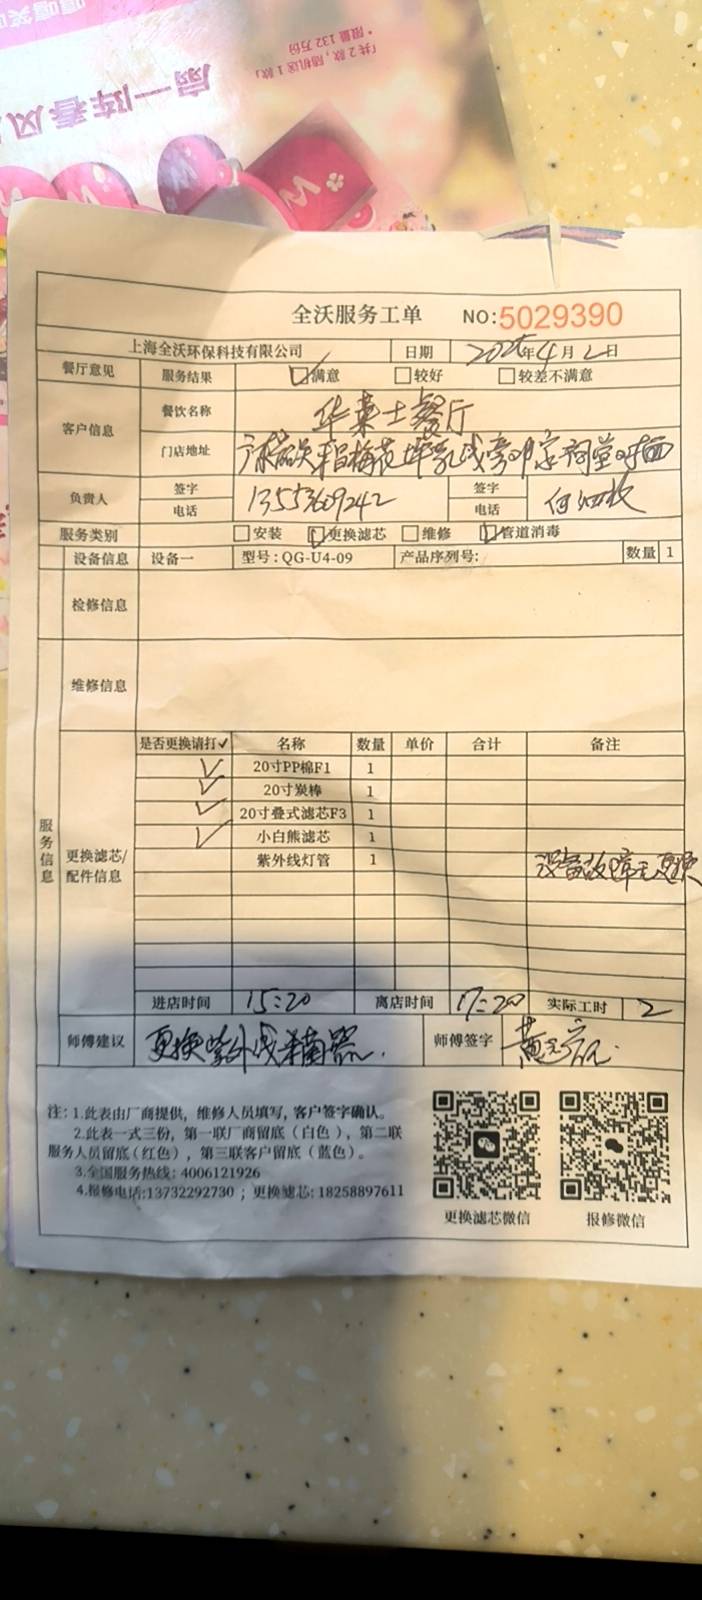 嘻嘻笑
「共 2 款，随机送 1 款」
* 限量 132 万份
扇一阵春风
全沃服务工单 NO:5029390
上海全沃环保科技有限公司 日期 2025年4月2日
餐厅意见 服务结果 满意 较好 较差不满意
客户信息 餐饮名称 华莱士餐厅
门店地址
负责人 签字 电话 13553609242 签字 电话
服务类别 安装 更换滤芯 维修 管道消毒
设备信息 设备一 型号：QG-U4-09 产品序列号: 数量 1
检修信息
维修信息
服务信息
更换滤芯/配件信息
是否更换请打✓ 名称 数量 单价 合计 备注
✓ 20寸PP棉F1 1
✓ 20寸炭棒 1
✓ 20寸叠式滤芯F3 1
✓ 小白熊滤芯 1
紫外线灯管 1 设备故障无更换
进店时间 15:20 离店时间 17:20 实际工时 2
师傅建议 更换紫外线杀菌器. 师傅签字
注：1.此表由厂商提供，维修人员填写，客户签字确认。
2.此表一式三份，第一联厂商留底（白色），第二联
服务人员留底（红色），第三联客户留底（蓝色）。
3.全国服务热线：4006121926
4.报修电话:13732292730 ；更换滤芯: 18258897611
更换滤芯微信 报修微信